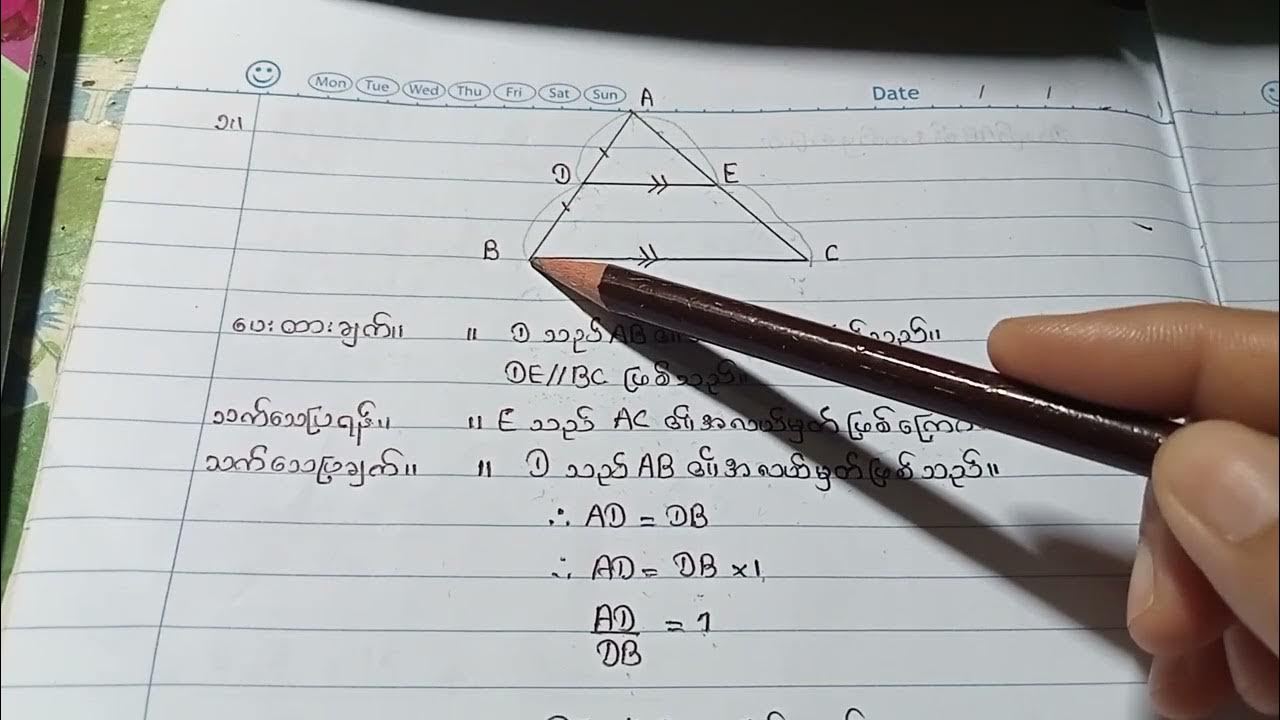 Mon Tue Wed Thu Fri Sat Sun
Date / /
A
၁။
D E
B C
ပေးထားချက်။ ။ D သည် AB ၏
DE//BC ဖြစ်သည်။
သက်သေပြရန်။ ။ E သည် AC ၏ အလယ်မှတ် ဖြစ်ကြောင
သက်သေပြချက်။ ။ D သည် AB ၏ အလယ်မှတ် ဖြစ်သည်။
∴ AD = DB
∴ AD = DB × 1
AD/DB = 1